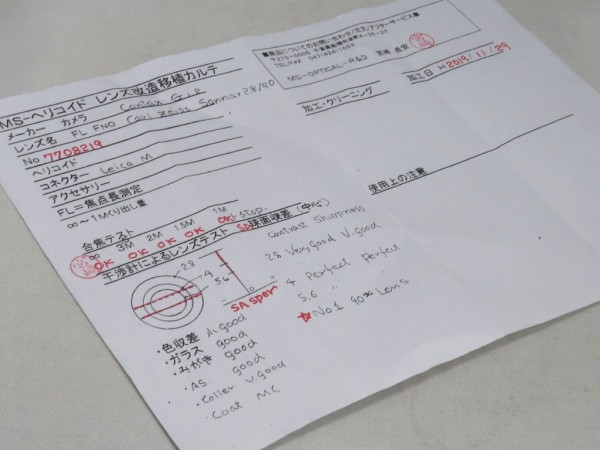 MS-ヘリコイド レンズ改造移植カルテ
メーカー カメラ Contax G1.2
レンズ名 FL FNO Carl Zeiss Sonnar 28/90
No 7708219
ヘリコイド
コネクター Leica M
アクセサリー
FL=焦点長測定
∞~1Mくり出し量
合焦テスト
∞ 3M 2M 1.5M 1M
OK OK OK OK OK stop.
干渉計によるレンズテスト SA球面収差(中心)
2.8
4
5.6
SA sper
・色収差 小 good
・ガラス good
・みがき good
・AS good
・Coller V.good
・Coat MC
Contrast Sharpness
2.8 Very good V.good
4 Perfect Perfect
5.6 " "
☆No1 90% Lens
■商品についてのお問い合わせ/注文/アフターサービス■
TEL/FAX 047(424)1659
MS-OPTICAL-R&D 宮崎 貞安
加工日 H 2019/11/29
加工・クリーニング
使用上の注意